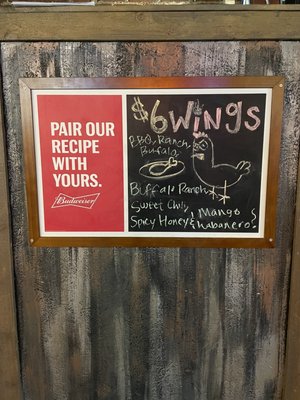 PAIR OUR
RECIPE
WITH
YOURS.
Budweiser
$6 WiNGS
BBQ, Ranch,
Buffalo
Buffalo Ranch
Sweet Chili
Spicy Honey &
Mango
habanero